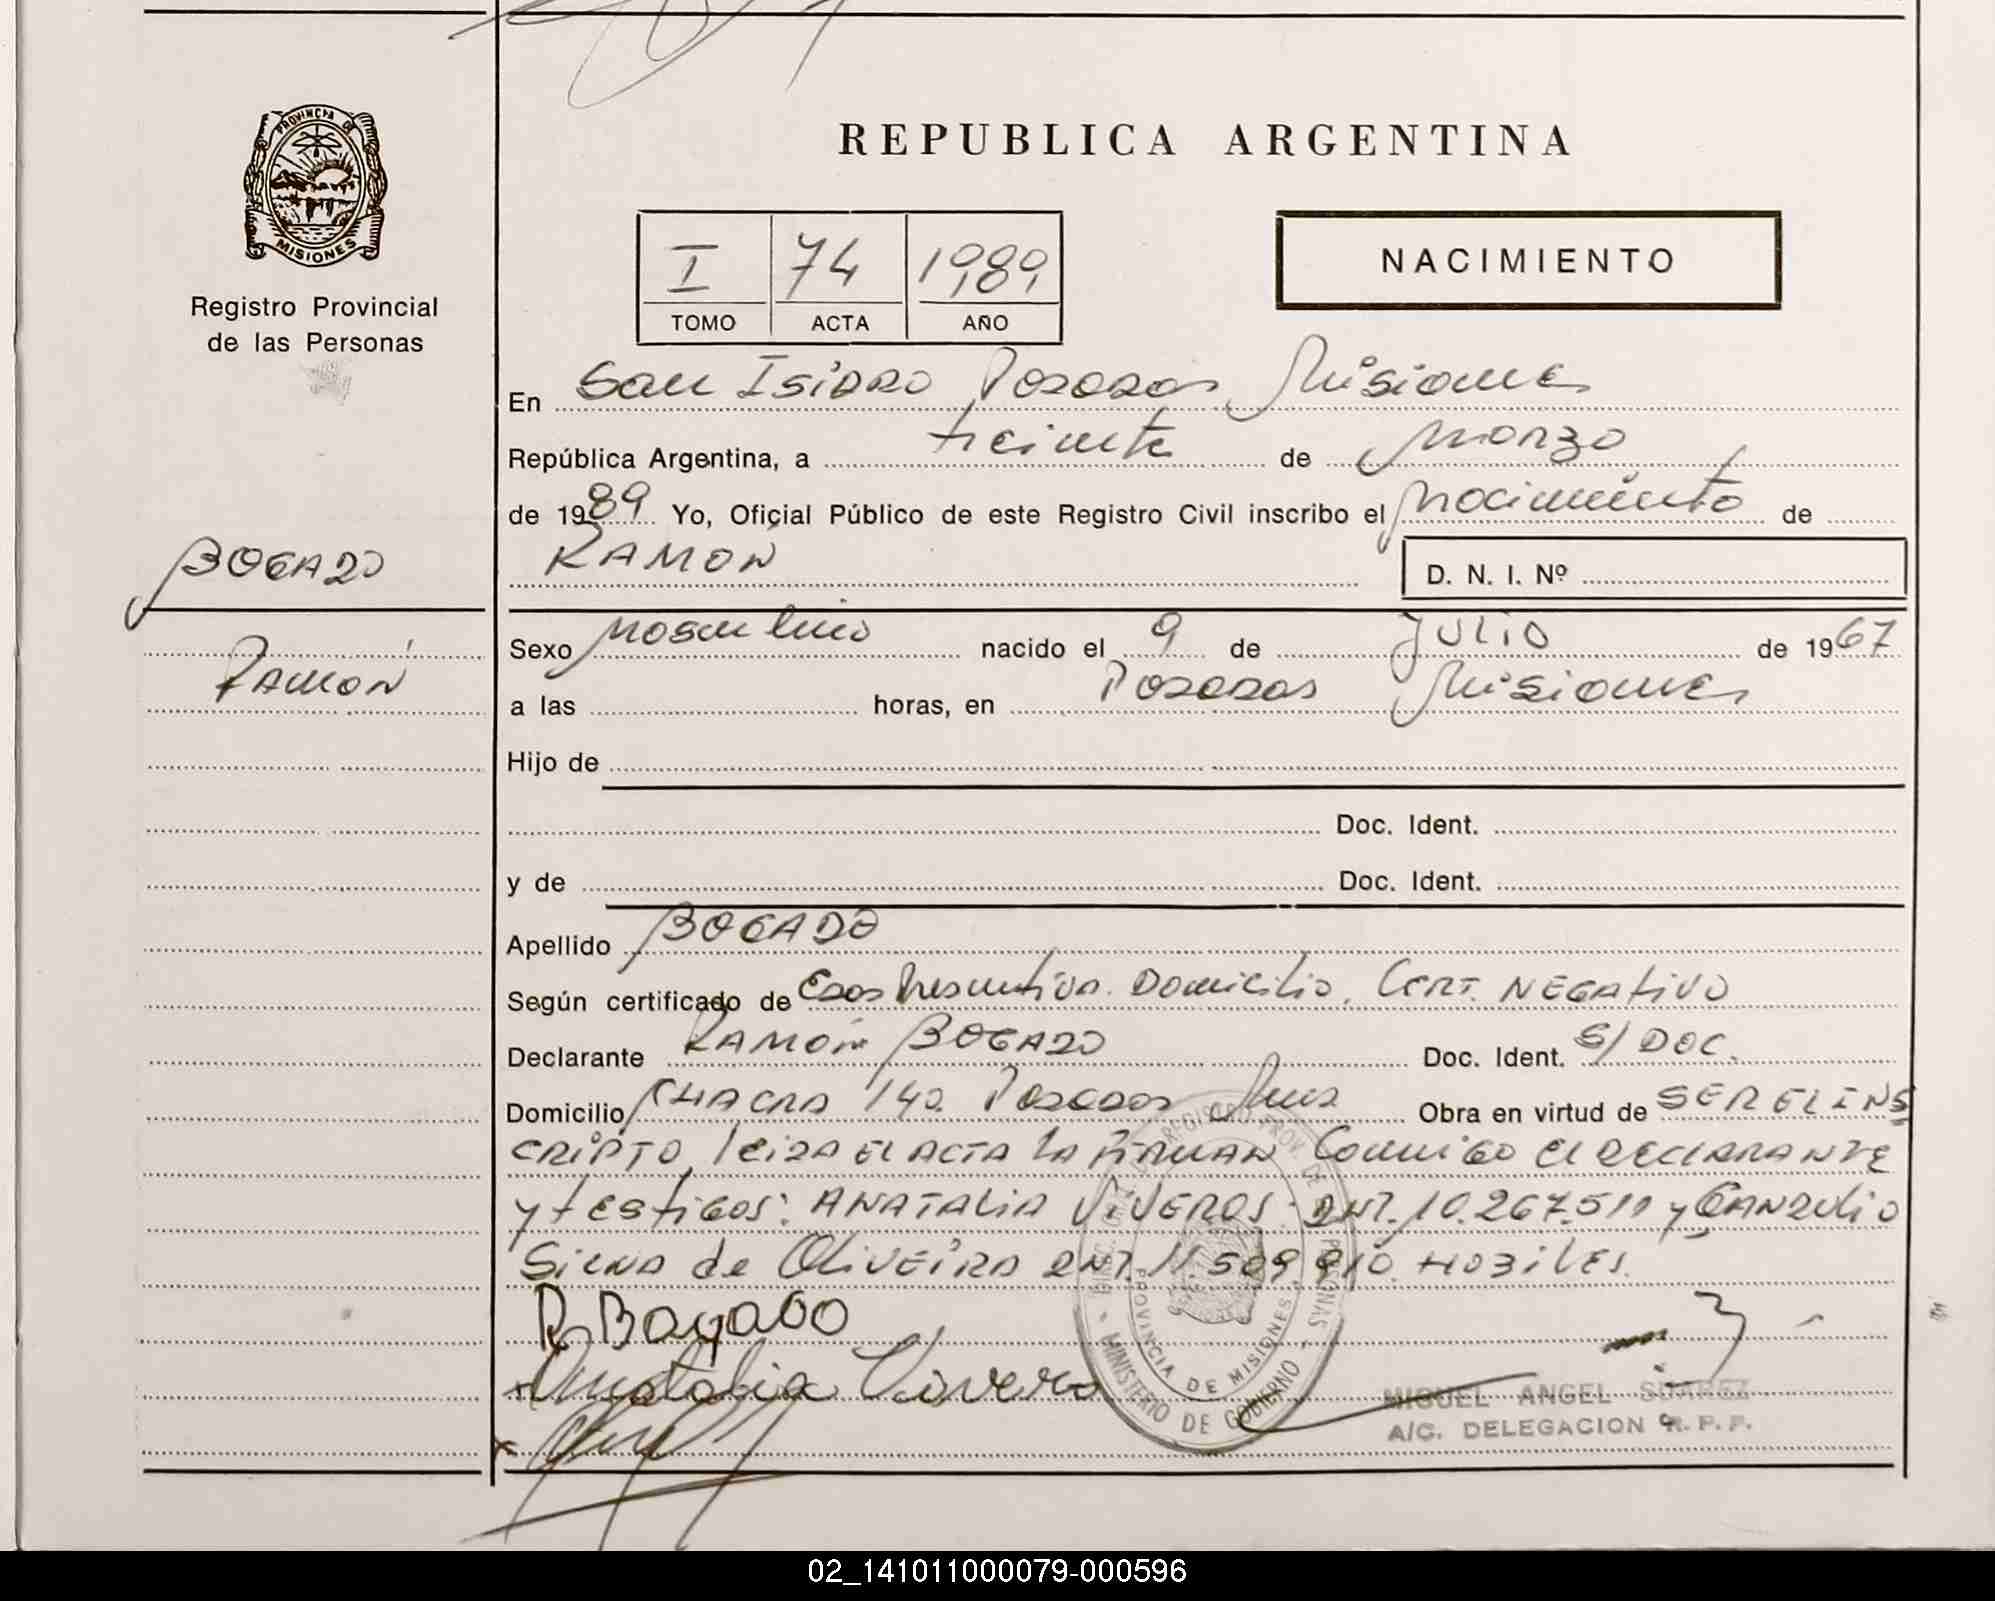 REPUBLICA ARGENTINA
PROVINCIA DE
MISIONES
Registro Provincial
de las Personas
I 74 1989
TOMO ACTA AÑO
NACIMIENTO
En San Isidro Posadas Misiones
República Argentina, a treinta de Marzo
de 1989 Yo, Oficial Público de este Registro Civil inscribo el Nacimiento de
RAMON
D. N. I. Nº
BOGADO
RAMON
Sexo Masculino nacido el 9 de JULIO de 1967
a las horas, en Posadas Misiones
Hijo de
Doc. Ident.
y de Doc. Ident.
Apellido BOGADO
Según certificado de Edad Presuntiva. Domicilio. Cert. NEGATIVO
Declarante RAMON BOGADO Doc. Ident. S/ DOC.
Domicilio CHACRA 140 Posadas Obra en virtud de SER EL INS
CRIPTO, leida el ACTA la FIRMAN Conmigo el DECLARANTE
y testigos: ANATALIA VIVEROS DNI. 10.267.510 y
Silva de OLIVEIRA DNI. 11.509.910 HABILES.
R Bogado
Anatalia Vivero
REGISTRO PROV. DE LAS PERSONAS
PROVINCIA DE MISIONES
MINISTERIO DE GOBIERNO
MIGUEL ANGEL SUAREZ
A/C. DELEGACION R. P. P.
02_141011000079-000596